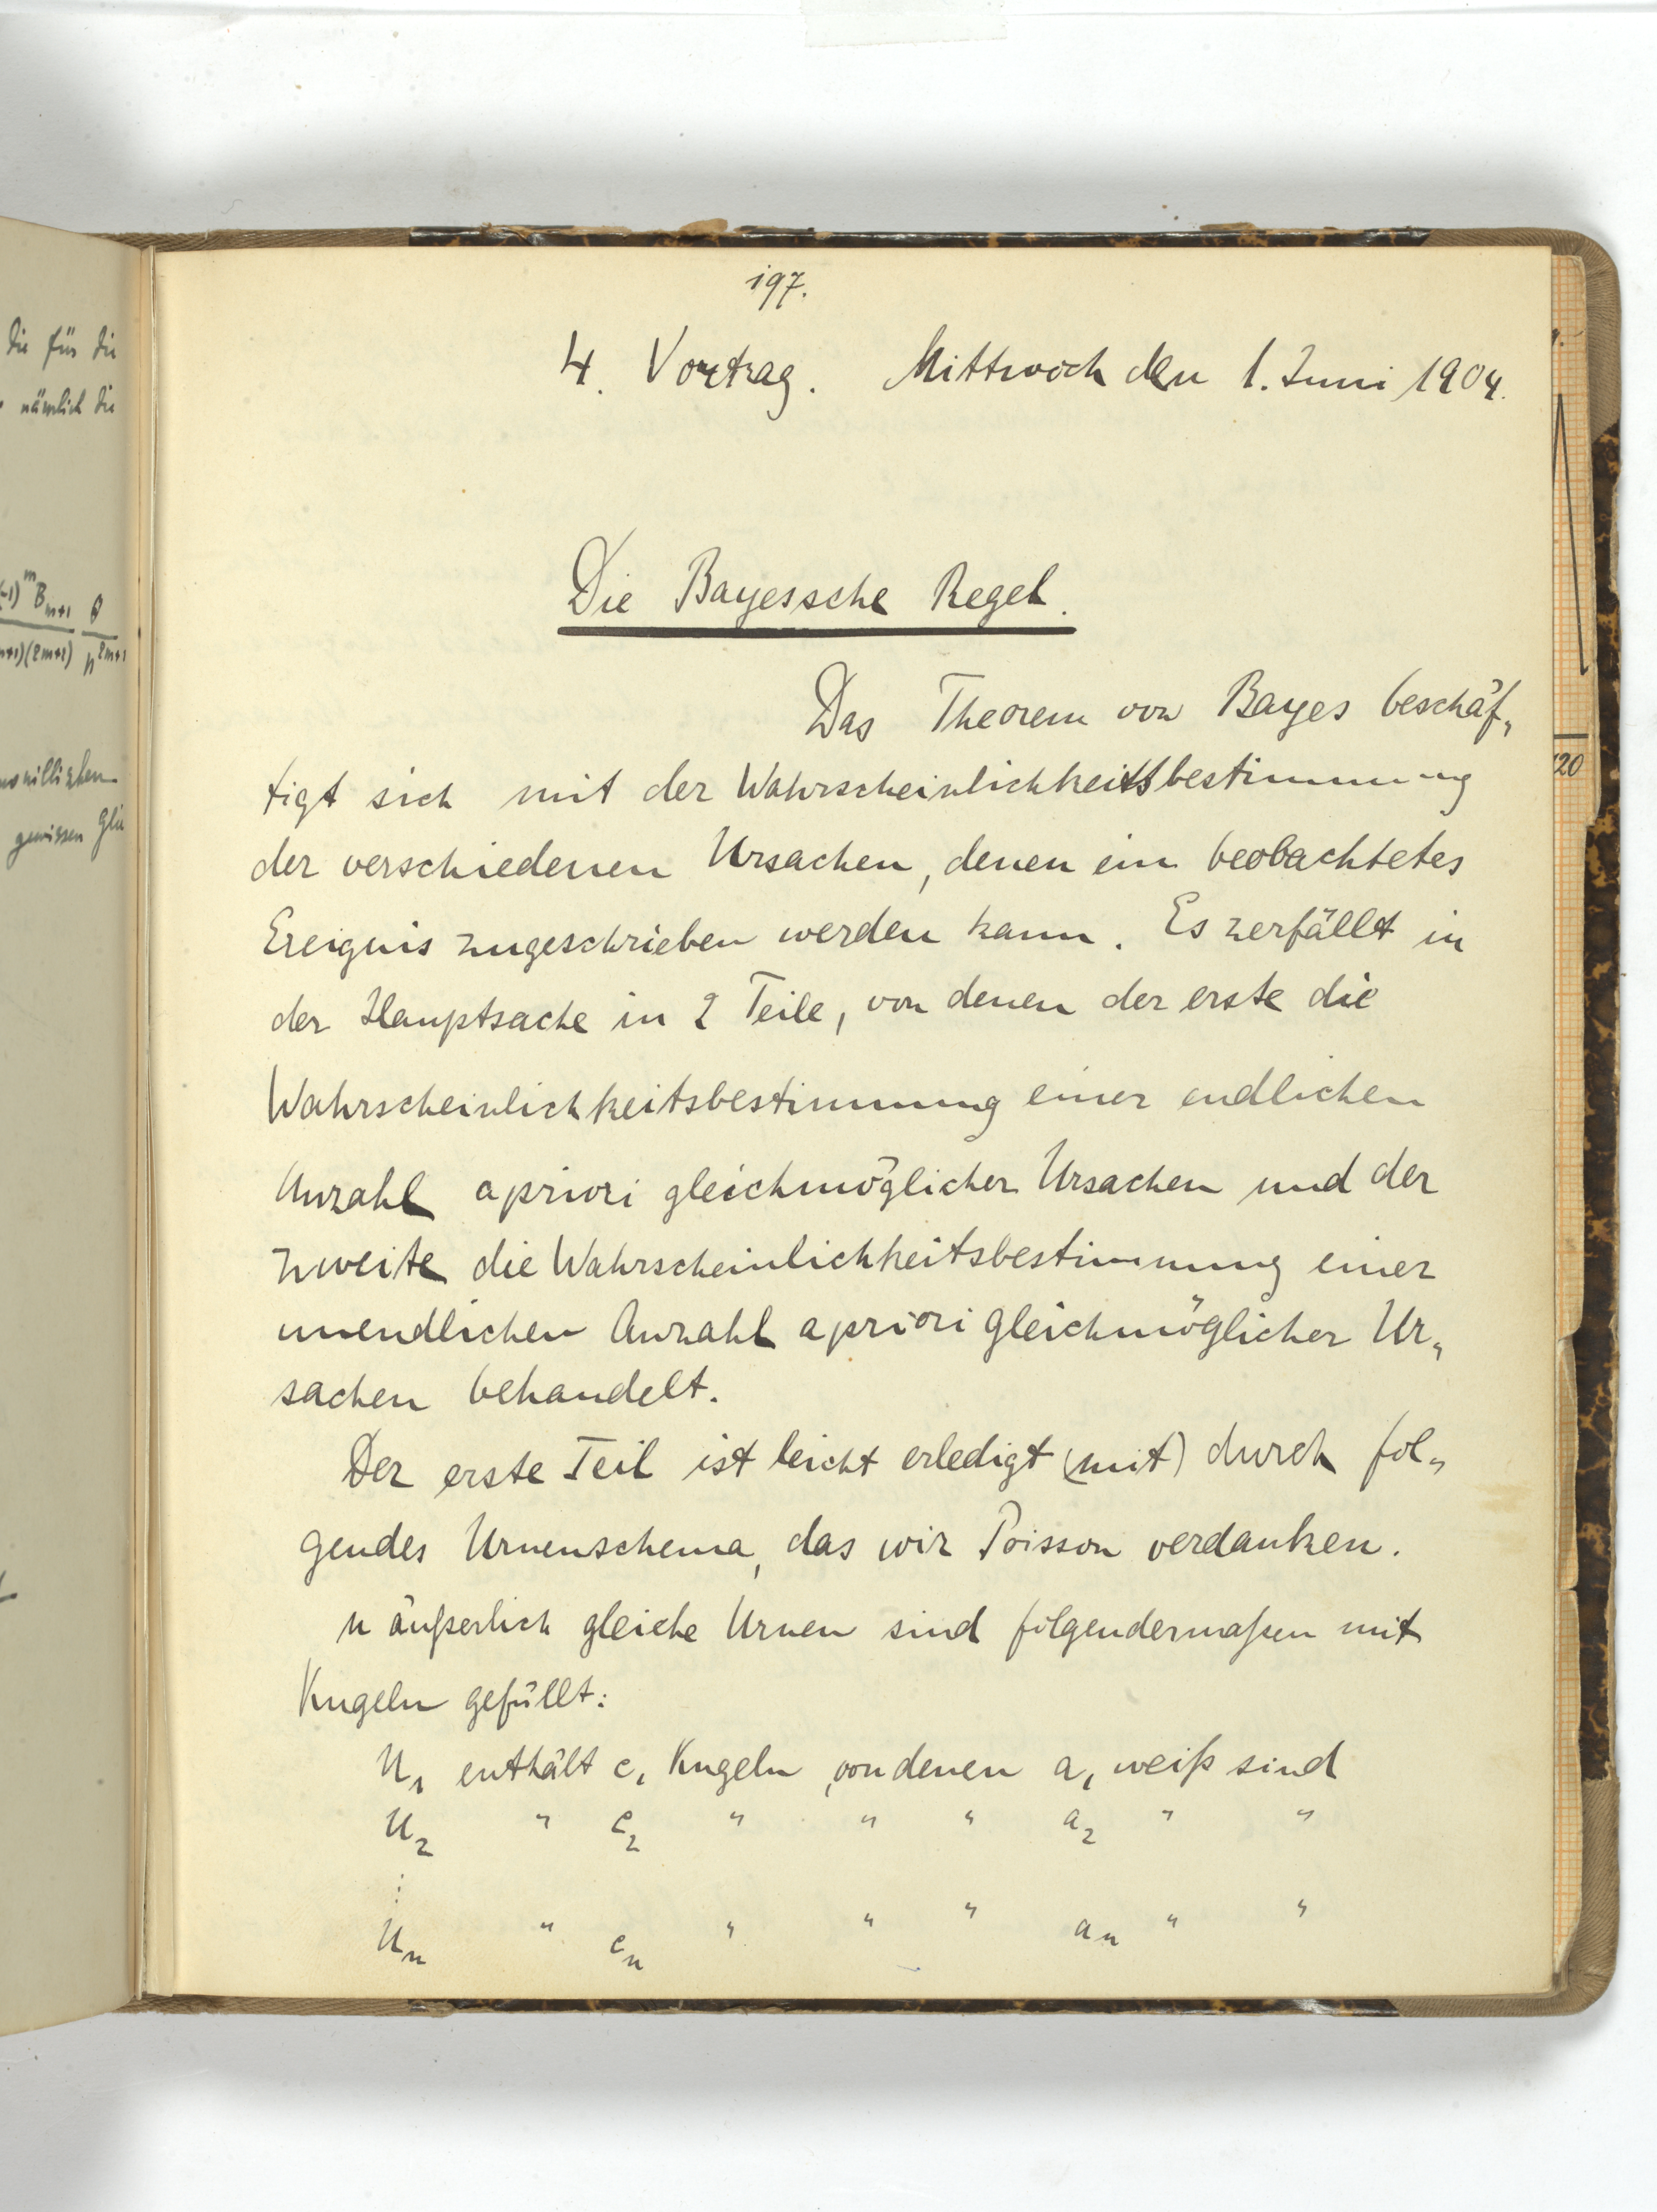 die für die
nämlich die
(-1)^m B_{m+1} θ
(2m+2) n^{2m+1}
gewissen
197.
4. Vortrag. Mittwoch den 1. Juni 1904.
Die Bayessche Regel.
Das Theorem von Bayes beschäf„
tigt sich mit der Wahrscheinlichkeitsbestimmung
der verschiedenen Ursachen, denen ein beobachtetes
Ereignis zugeschrieben werden kann. Es zerfällt in
der Hauptsache in 2 Teile, von denen der erste die
Wahrscheinlichkeitsbestimmung einer endlichen
Anzahl apriori gleichmöglicher Ursachen und der
zweite die Wahrscheinlichkeitsbestimmung einer
unendlichen Anzahl apriori gleichmöglicher Ur„
sachen behandelt.
Der erste Teil ist leicht erledigt (mit) durch fol„
gendes Urnenschema, das wir Poisson verdanken.
n äußerlich gleiche Urnen sind folgendermaßen mit
Kugeln gefüllt:
U₁ enthält c₁ Kugeln, von denen a₁ weiß sind
U₂ " c₂ " " " a₂ " "
⋮
Uₙ " cₙ " " " aₙ " "
120